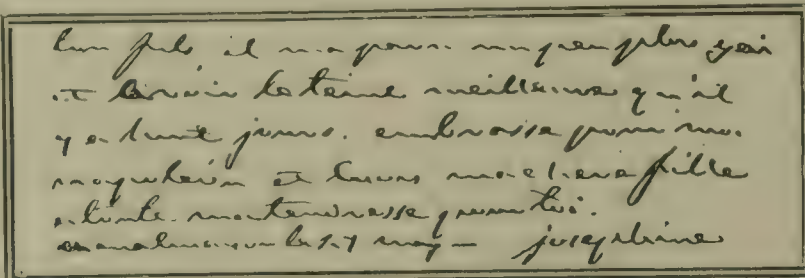 fils il m a paru un peu plus gai
et avoir le teint meilleure qu'il
y a huit jours. embrasse pour moi
napoleon et louis ma chere fille
toute ma tendresse pour toi.
malmaison le may — josephine